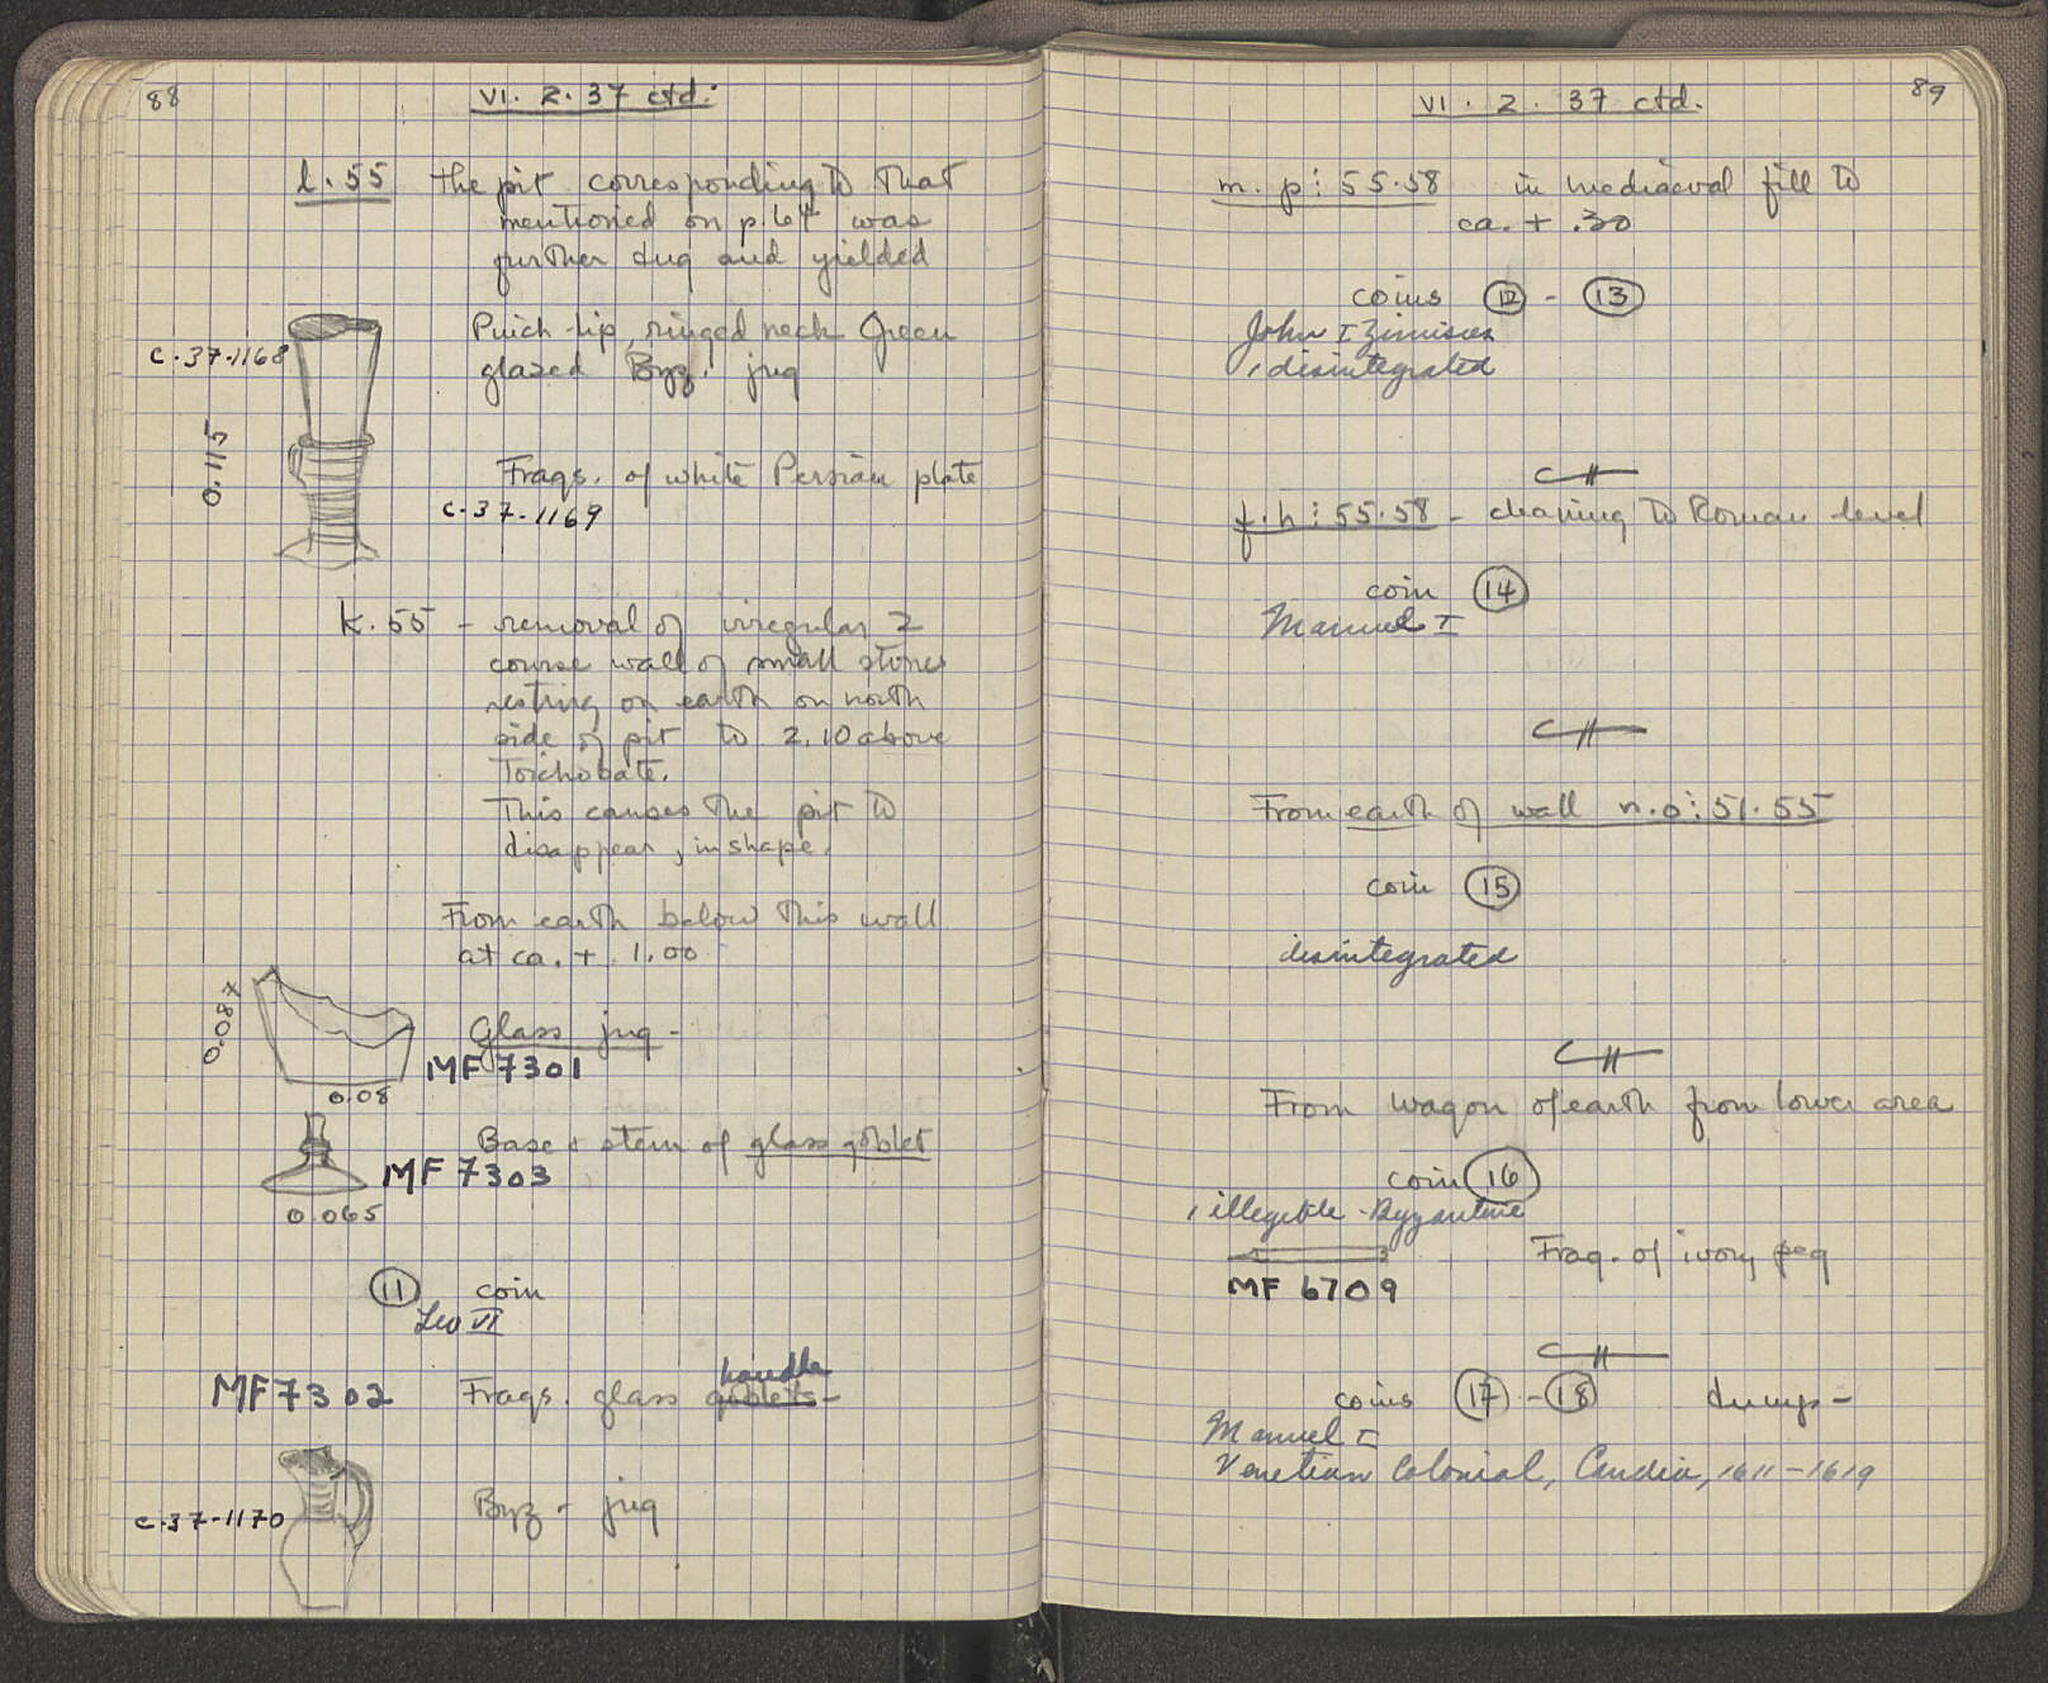 88
VI. 2. 37 ctd.
l. 55 the pit corresponding to that
mentioned on p. 64 was
further dug and yielded
Pinch-lip, ringed neck Green
glazed Byz. jug
C.37.1168
0.115
Frags. of white Persian plate
C.37-1169
K. 55 - removal of irregular 2
course wall of small stones
resting on earth on north
side of pit to 2.10 above
Toichobate.
This causes the pit to
disappear, in shape.
From earth below this wall
at ca. + 1.00
0.087
Glass jug -
MF 7301
0.08
Base & stem of glass goblet
MF 7303
0.065
11 coin
Leo VI
handle
MF7302 Frags. glass goblets-
C.37-1170 Byz - jug
89
VI. 2. 37 ctd.
m. p : 55.58 in mediaeval fill to
ca. + .30
coins 12 - 13
John I Zimisces
1 disintegrated
f.h : 55.58 - cleaning to Roman level
coin 14
Manuel I
From earth of wall n.o : 51.55
coin 15
disintegrated
From wagon of earth from lower area
coin 16
1 illegible - Byzantine
Frag. of ivory peg
MF 6709
coins 17 - 18 dump-
Manuel I
Venetian Colonial, Candia, 1611-1619